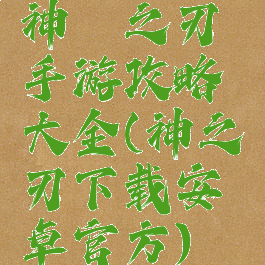 神 之刃
手游攻略
大全(神之
刃下载安
卓官方)